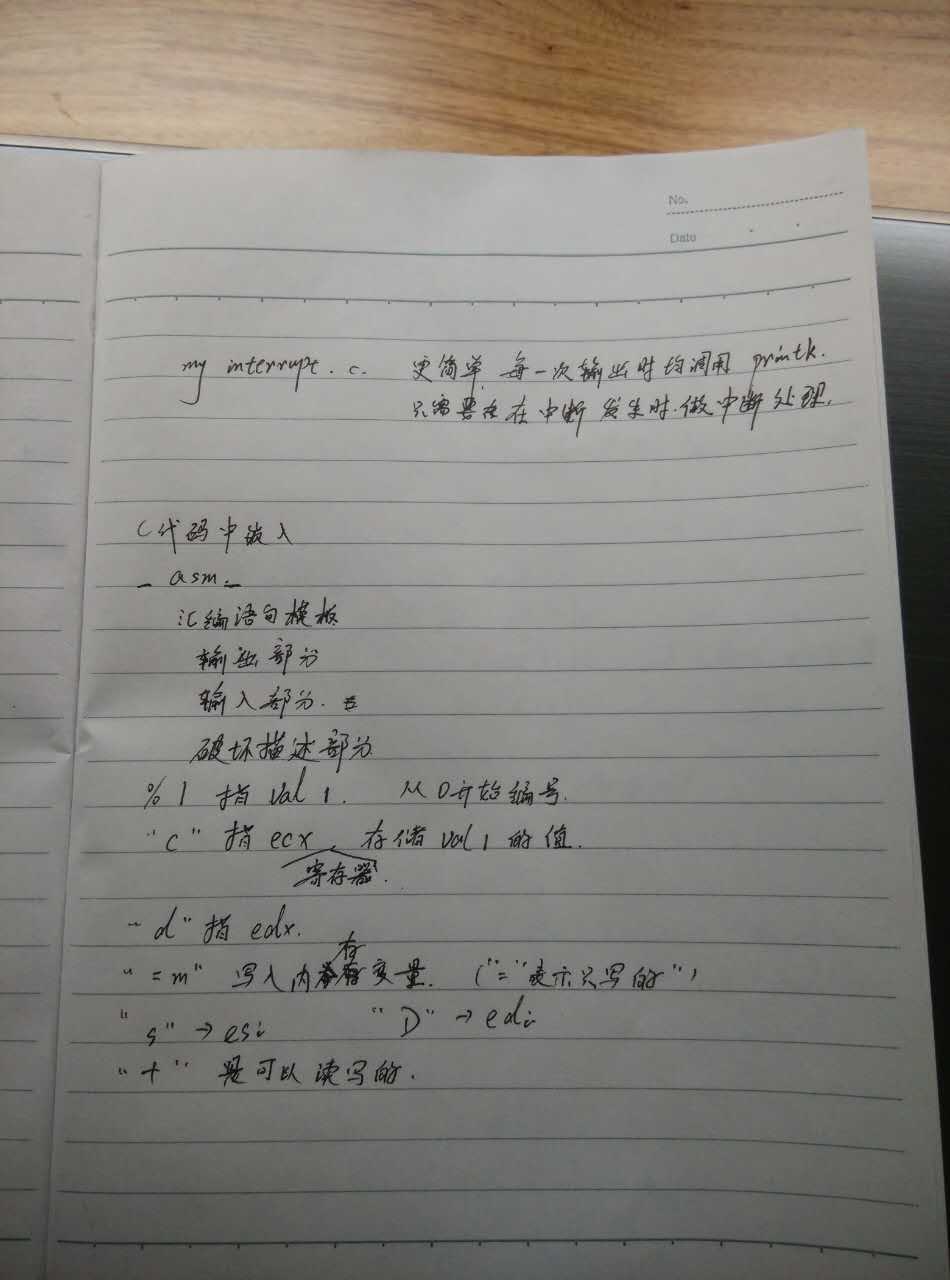 No.
Date
my interrupt.c. 更简单，每一次输出时均调用 printk.
只需要在在中断发生时.做中断处理.
C代码中嵌入
_asm_
汇编语句模板
输出部分
输入部分.
破坏描述部分
%1 指 val 1. 从0开始编号.
"c" 指 ecx , 存储 val 1 的值.
寄存器.
"d" 指 edx.
存
"=m" 写入内变量. ("="表示只写的")
"s" → esi "D" → edi
"+" 是可以读写的.